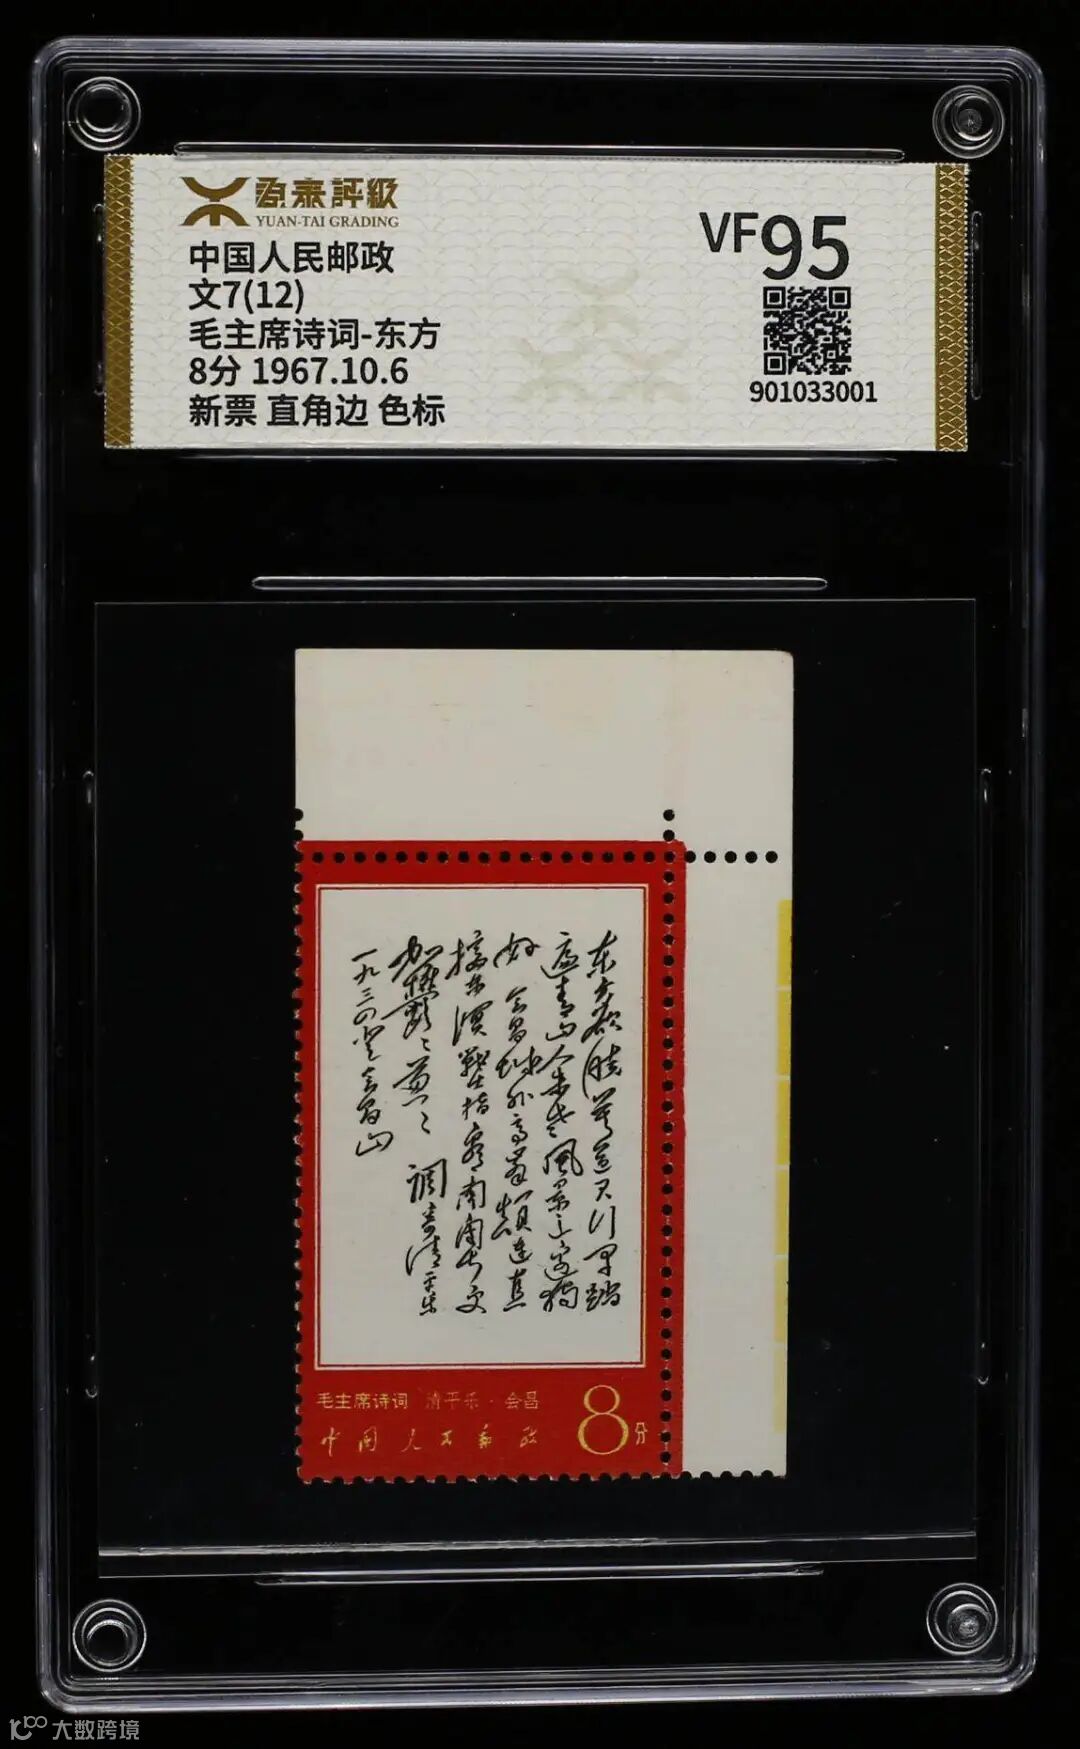 源泰評級
YUAN-TAI GRADING
中国人民邮政
文7(12)
毛主席诗词-东方
8分 1967.10.6
新票 直角边 色标
VF95
901033001
东方欲晓莫道君行早踏
遍青山人未老風景这边独
好 会昌城外高峯颠连直
接东溟戰士指看南粤更
加鬱〻葱〻 调寄清平乐
一九三四登会昌山
毛主席诗词 清平乐·会昌
中国人民邮政
8分
大数跨境